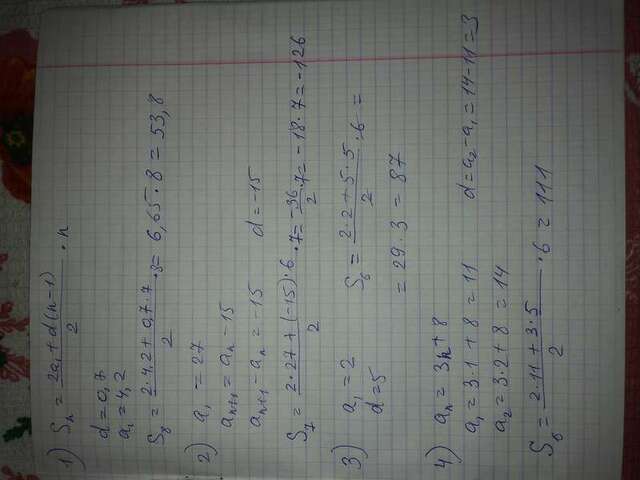 1) Sn = (2a₁ + d(n-1))/2 · n
d = 0,7
a₁ = 4,2
S₈ = (2·4,2 + 0,7·7)/2 · 8 = 6,65·8 = 53,8
2) a₁ = 27
aₙ₊₁ = aₙ - 15
aₙ₊₁ - aₙ = -15 d = -15
S₇ = (2·27 + (-15)·6)/2 · 7 = -36/2 · 7 = -18·7 = -126
3) a₁ = 2 S₆ = (2·2 + 5·5)/2 · 6 =
d = 5
= 29·3 = 87
4) aₙ = 3n + 8
a₁ = 3·1 + 8 = 11 d = a₂ - a₁ = 14 - 11 = 3
a₂ = 3·2 + 8 = 14
S₆ = (2·11 + 3·5)/2 · 6 = 111